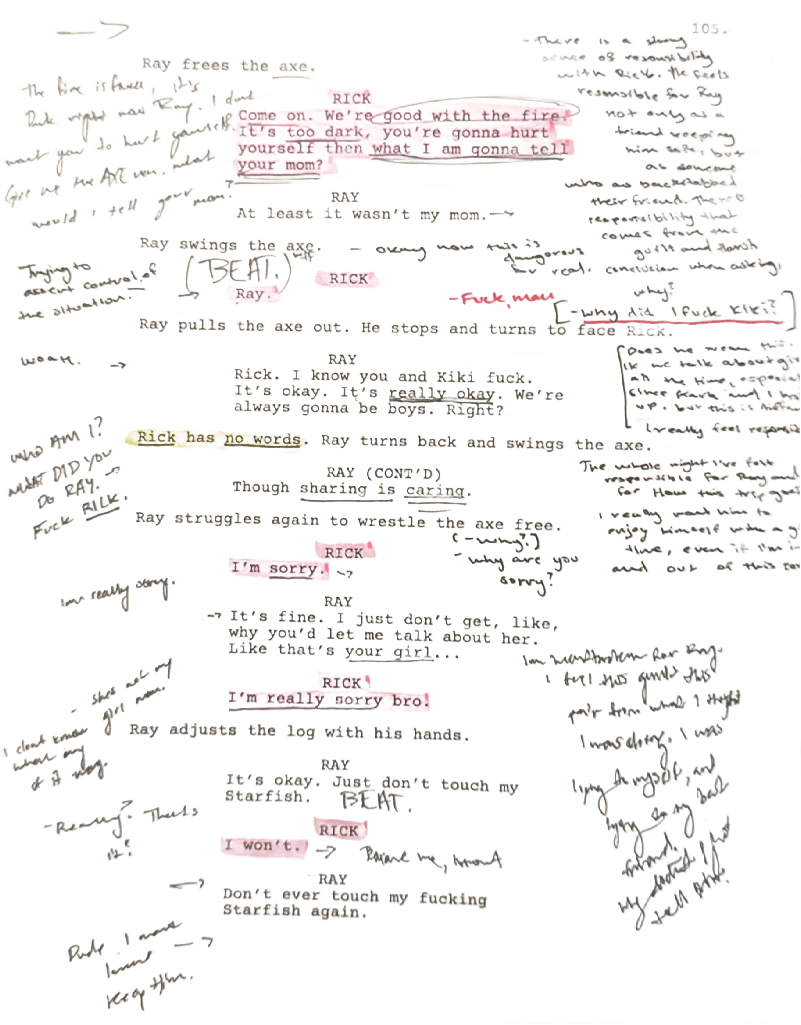 105.
Ray frees the axe.
- There is a strong
sense of resonsibility
with Rick. He feels
responsible for Ray
not only as a
friend keeping
him safe, but
as someone
who as backstabbed
their friend. There
responsibility that
comes from the
guilt and harsh
conclusion when asking,
why?
The fire is fine, it's
Dude right now Ray. I dont
want you to hurt yourself.
Give me the AXE man, what
would I tell your mom?
RICK
Come on. We're good with the fire.
It's too dark, you're gonna hurt
yourself then what I am gonna tell
your mom?
RAY
At least it wasn't my mom.
Ray swings the axe.
- okay now this is
dangerous
for real.
(BEAT.)
Trying to
assert control of
the situation.
RICK
Ray.
- Fuck, man
[- why did I fuck Kiki?]
Ray pulls the axe out. He stops and turns to face Rick.
woah.
RAY
Rick. I know you and Kiki fuck.
It's okay. It's really okay. We're
always gonna be boys. Right?
Does he mean this
ik we talk about
all the time,
since and I
up. but this is
I really feel
Rick has no words. Ray turns back and swings the axe.
WHO AM I?
WHAT DID YOU
DO RAY.
Fuck RICK.
RAY (CONT'D)
Though sharing is caring.
The whole night I've felt
responsible for Ray and
for How this trip
I really want him to
enjoy himself with a
time, even if I'm in
and out of this
Ray struggles again to wrestle the axe free.
(- why?)
- why are you
sorry?
RICK
I'm sorry.
Im really sorry.
RAY
It's fine. I just don't get, like,
why you'd let me talk about her.
Like that's your girl...
- shes not my
girl man.
I dont know
what any
of it
RICK
I'm really sorry bro!
Im heartbroken for Ray.
I feel this this
from what I
I was doing. I was
lying to myself, and
lying to my best
friend.
Ray adjusts the log with his hands.
RAY
It's okay. Just don't touch my
Starfish.
BEAT.
- Really? Thats
it?
RICK
I won't.
me,
RAY
Don't ever touch my fucking
Starfish again.
Dude I